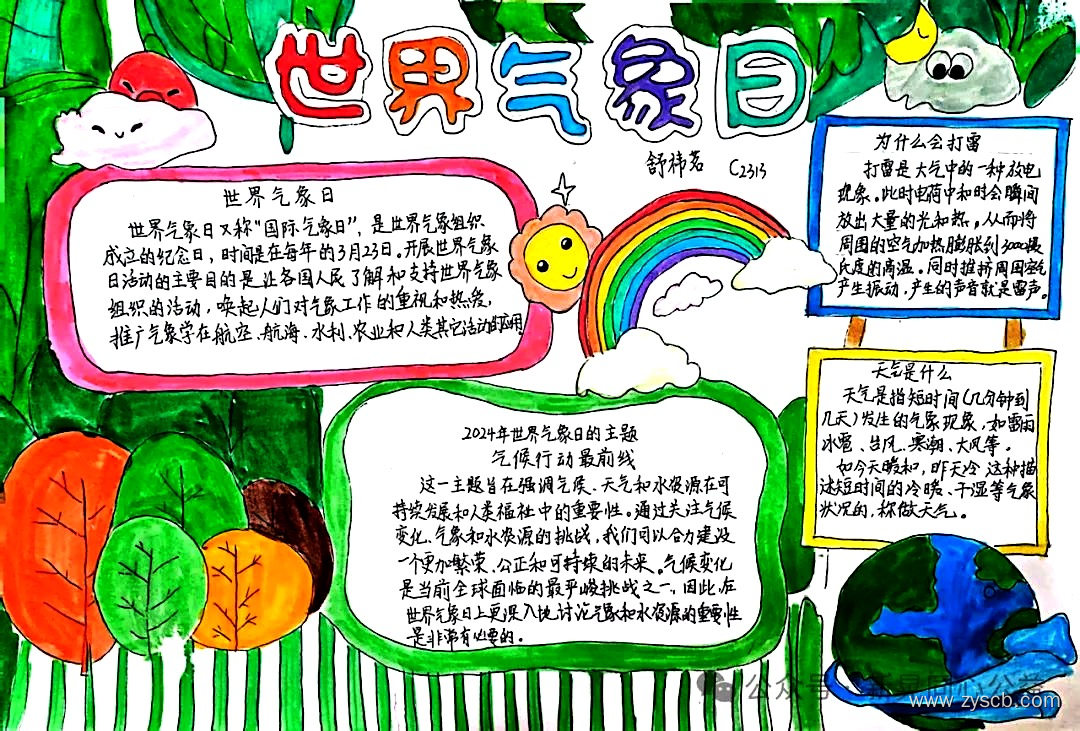 世界气象日
舒祎茗 C2313
世界气象日
世界气象日又称“国际气象日”，是世界气象组织
成立的纪念日，时间是在每年的3月23日。开展世界气象
日活动的主要目的是让各国人民了解和支持世界气象
组织的活动，唤起人们对气象工作的重视和热爱，
推广气象学在航空、航海、水利、农业和人类其它活动的应用
为什么会打雷
打雷是大气中的一种放电
现象。此时电荷中和时会瞬间
放出大量的光和热。从而将
周围的空气加热膨胀到3000摄
氏度的高温。同时推挤周围空气
产生振动，产生的声音就是雷声。
天气是什么
天气是指短时间（几分钟到
几天）发生的气象现象，如雷雨
冰雹、台风、寒潮、大风等。
如今天暖和，昨天冷 这种描
述短时间的冷暖、干湿等气象
状况的，称做天气。
2024年世界气象日的主题
气候行动最前线
这一主题旨在强调气候、天气和水资源在可
持续发展和人类福祉中的重要性。通过关注气候
变化、气象和水资源的挑战，我们可以合力建设
一个更加繁荣、公正和可持续的未来。气候变化
是当前全球面临的最严峻挑战之一，因此，在
世界气象日上更深入地讨论气象和水资源的重要性
是非常有必要的。
公众号
www.zyscb.com